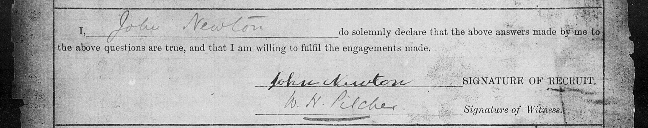 I, John Newton do solemnly declare that the above answers made by me to
the above questions are true, and that I am willing to fulfil the engagements made.
John Newton SIGNATURE OF RECRUIT.
W. H. Pilcher Signature of Witness.